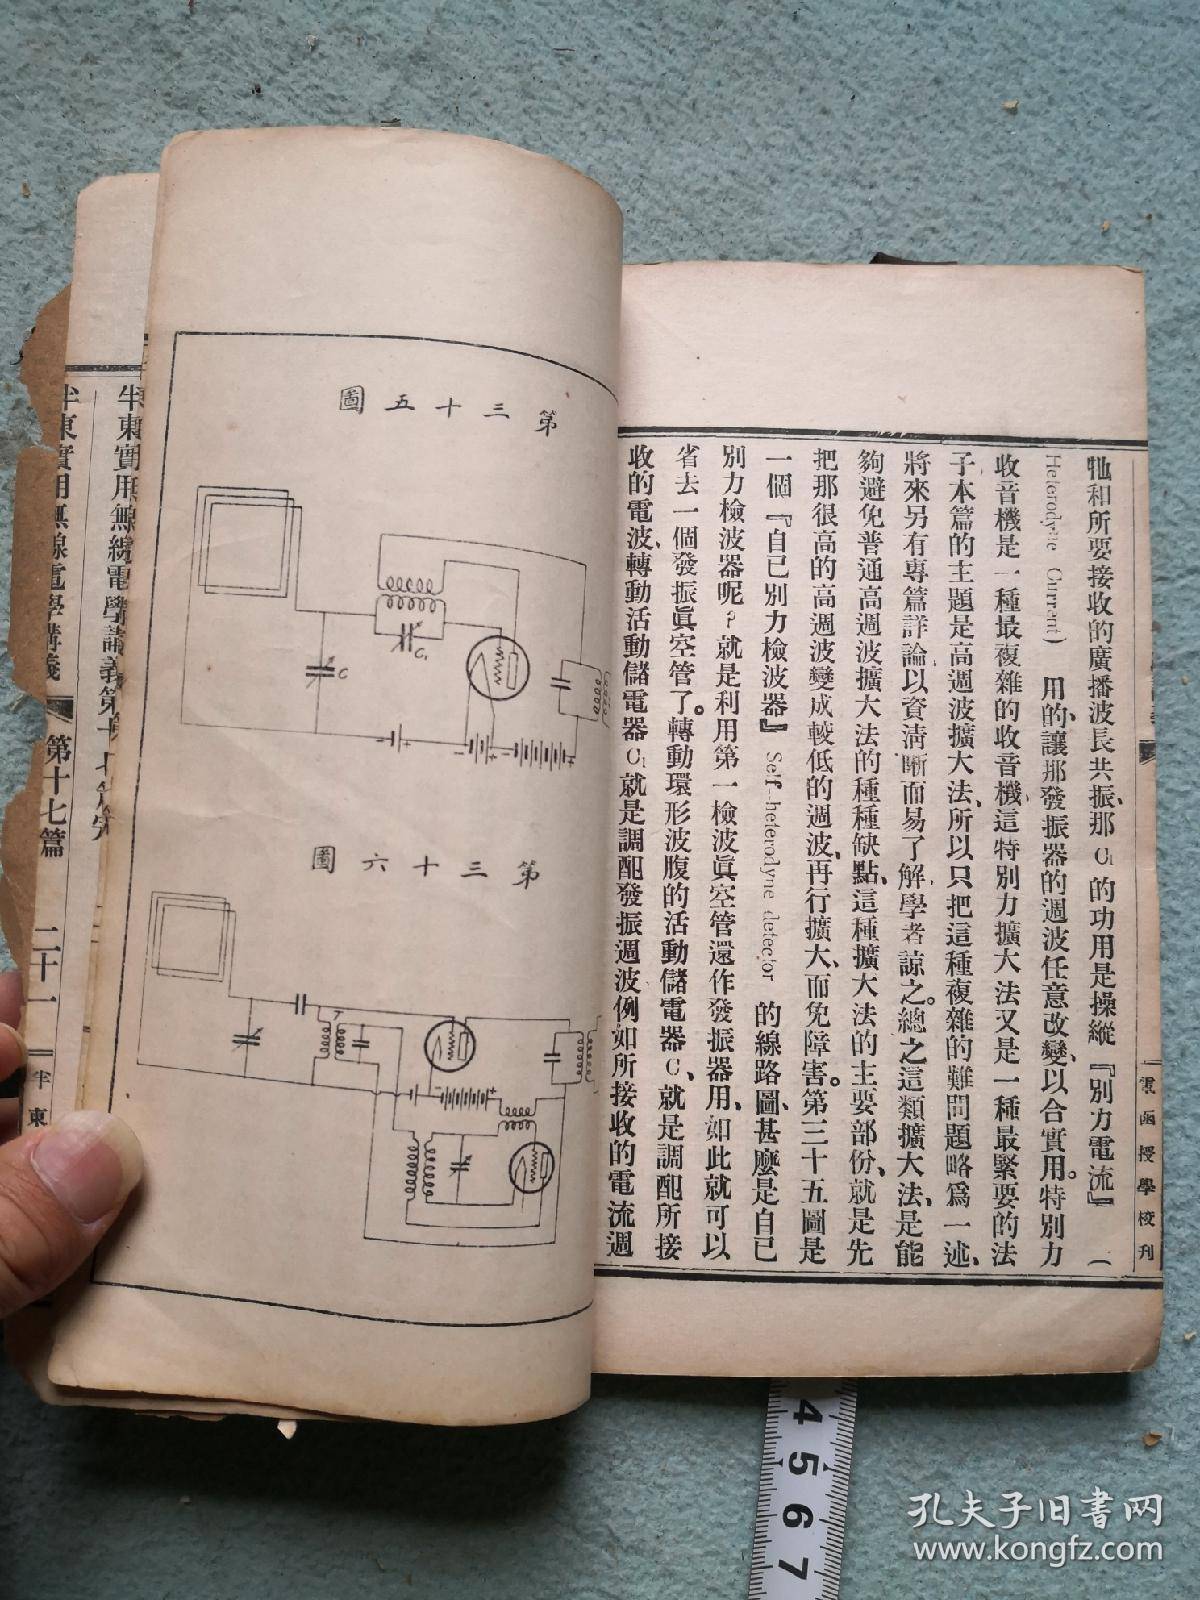 牠和所要接收的廣播波長共振、那C₁的功用是操縱『別力電流』(
Heterodyne Current) 用的、讓那發振器的週波任意改變、以合實用。特別力
收音機是一種最複雜的收音機這特別力擴大法又是一種最緊要的法
子本篇的主題是高週波擴大法、所以只把這種複雜的難問題略爲一述、
將來另有專篇詳論以資淸晰而易了解、學者諒之。總之這類擴大法、是能
夠避免普通高週波擴大法的種種缺點、這種擴大法的主要部份、就是先
把那很高的高週波變成較低的週波、再行擴大、而免障害。第三十五圖是
一個『自已別力檢波器』 Self-heterodyne detector 的線路圖、甚麼是自已
別力檢波器呢?就是利用第一檢波眞空管還作發振器用、如此就可以
省去一個發振眞空管了。轉動環形波腹的活動儲電器C、就是調配所接
收的電波、轉動活動儲電器C₁就是調配發振週波例如所接收的電流週
電函授學校刊
第三十五圖
C
C₁
第三十六圖
半東實用無線電學講義第十七篇完
半東實用無線電學講義
第十七篇
二十一
半東
4
5
6
7
孔夫子旧书网
www.kongfz.com